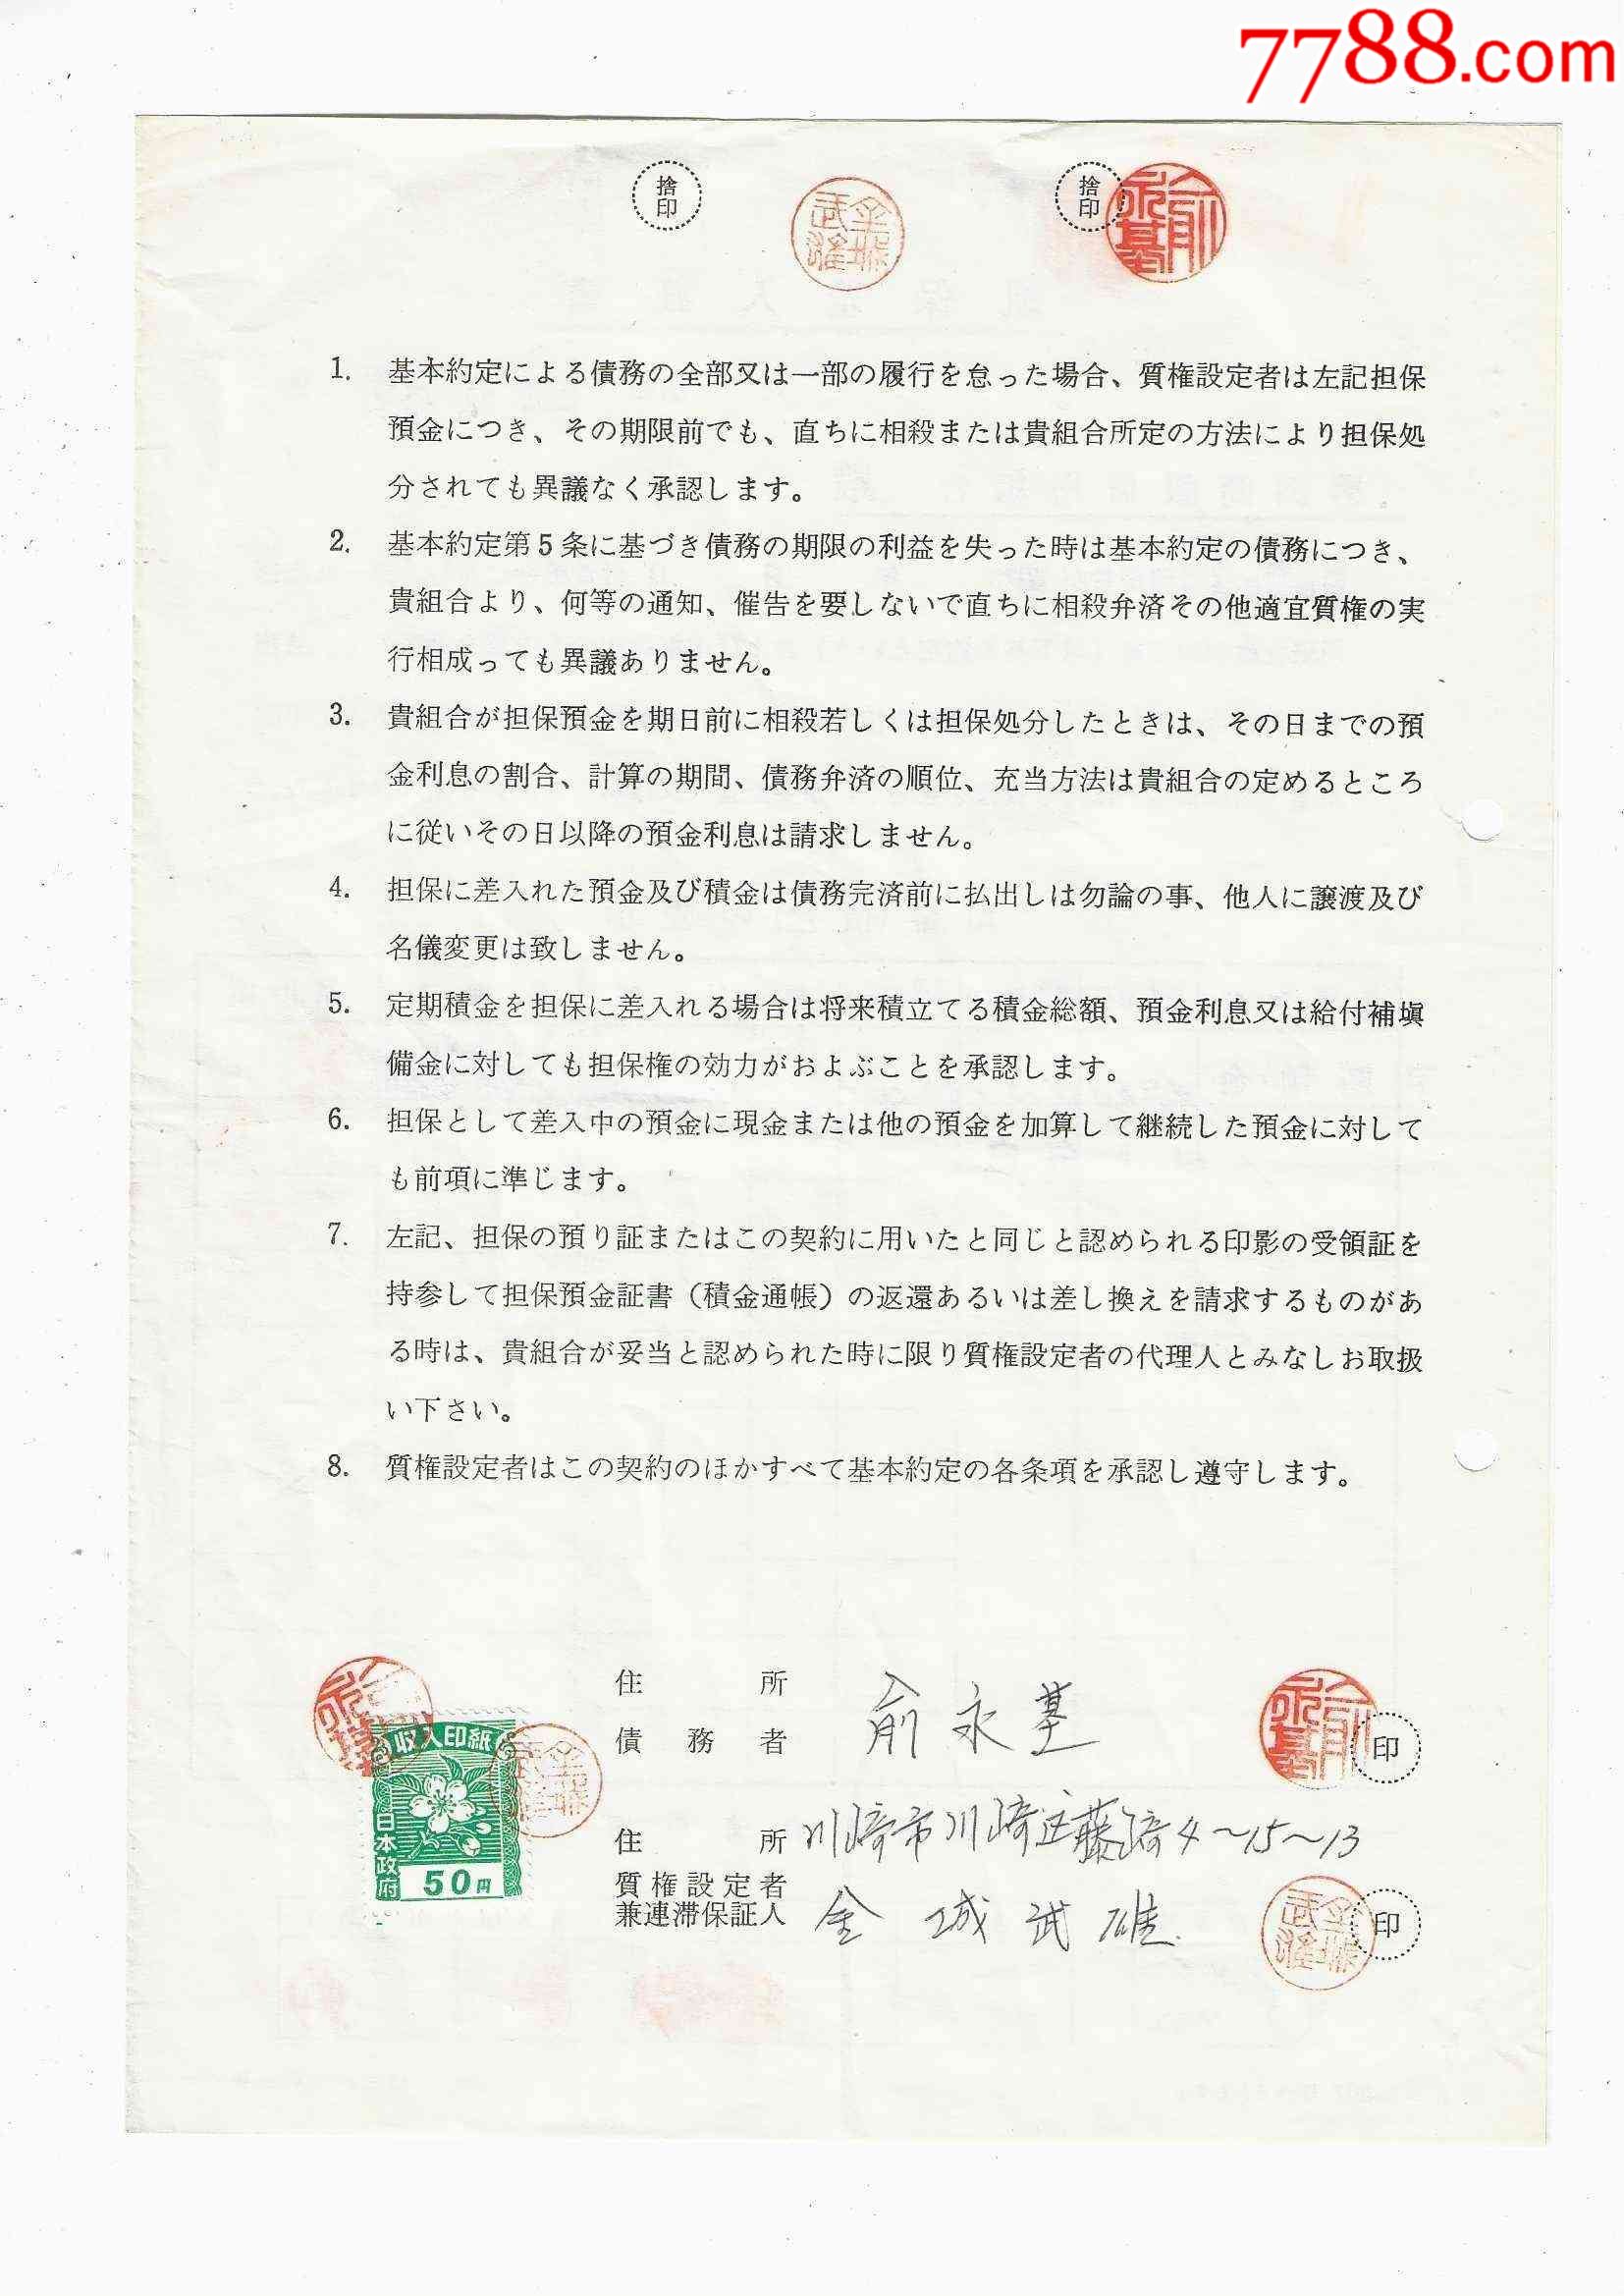 7788.com
捨印
捨印
1. 基本約定による債務の全部又は一部の履行を怠った場合、質権設定者は左記担保
預金につき、その期限前でも、直ちに相殺または貴組合所定の方法により担保処
分されても異議なく承認します。
2. 基本約定第5条に基づき債務の期限の利益を失った時は基本約定の債務につき、
貴組合より、何等の通知、催告を要しないで直ちに相殺弁済その他適宜質権の実
行相成っても異議ありません。
3. 貴組合が担保預金を期日前に相殺若しくは担保処分したときは、その日までの預
金利息の割合、計算の期間、債務弁済の順位、充当方法は貴組合の定めるところ
に従いその日以降の預金利息は請求しません。
4. 担保に差入れた預金及び積金は債務完済前に払出しは勿論の事、他人に譲渡及び
名儀変更は致しません。
5. 定期積金を担保に差入れる場合は将来積立てる積金総額、預金利息又は給付補塡
備金に対しても担保権の効力がおよぶことを承認します。
6. 担保として差入中の預金に現金または他の預金を加算して継続した預金に対して
も前項に準じます。
7. 左記、担保の預り証またはこの契約に用いたと同じと認められる印影の受領証を
持参して担保預金証書（積金通帳）の返還あるいは差し換えを請求するものがあ
る時は、貴組合が妥当と認められた時に限り質権設定者の代理人とみなしお取扱
い下さい。
8. 質権設定者はこの契約のほかすべて基本約定の各条項を承認し遵守します。
住所
債務者 兪永基 印
収入印紙
日本政府
50円
住所 川崎市川崎区藤崎4～15～13
質権設定者
兼連滞保証人 金城武雄 印